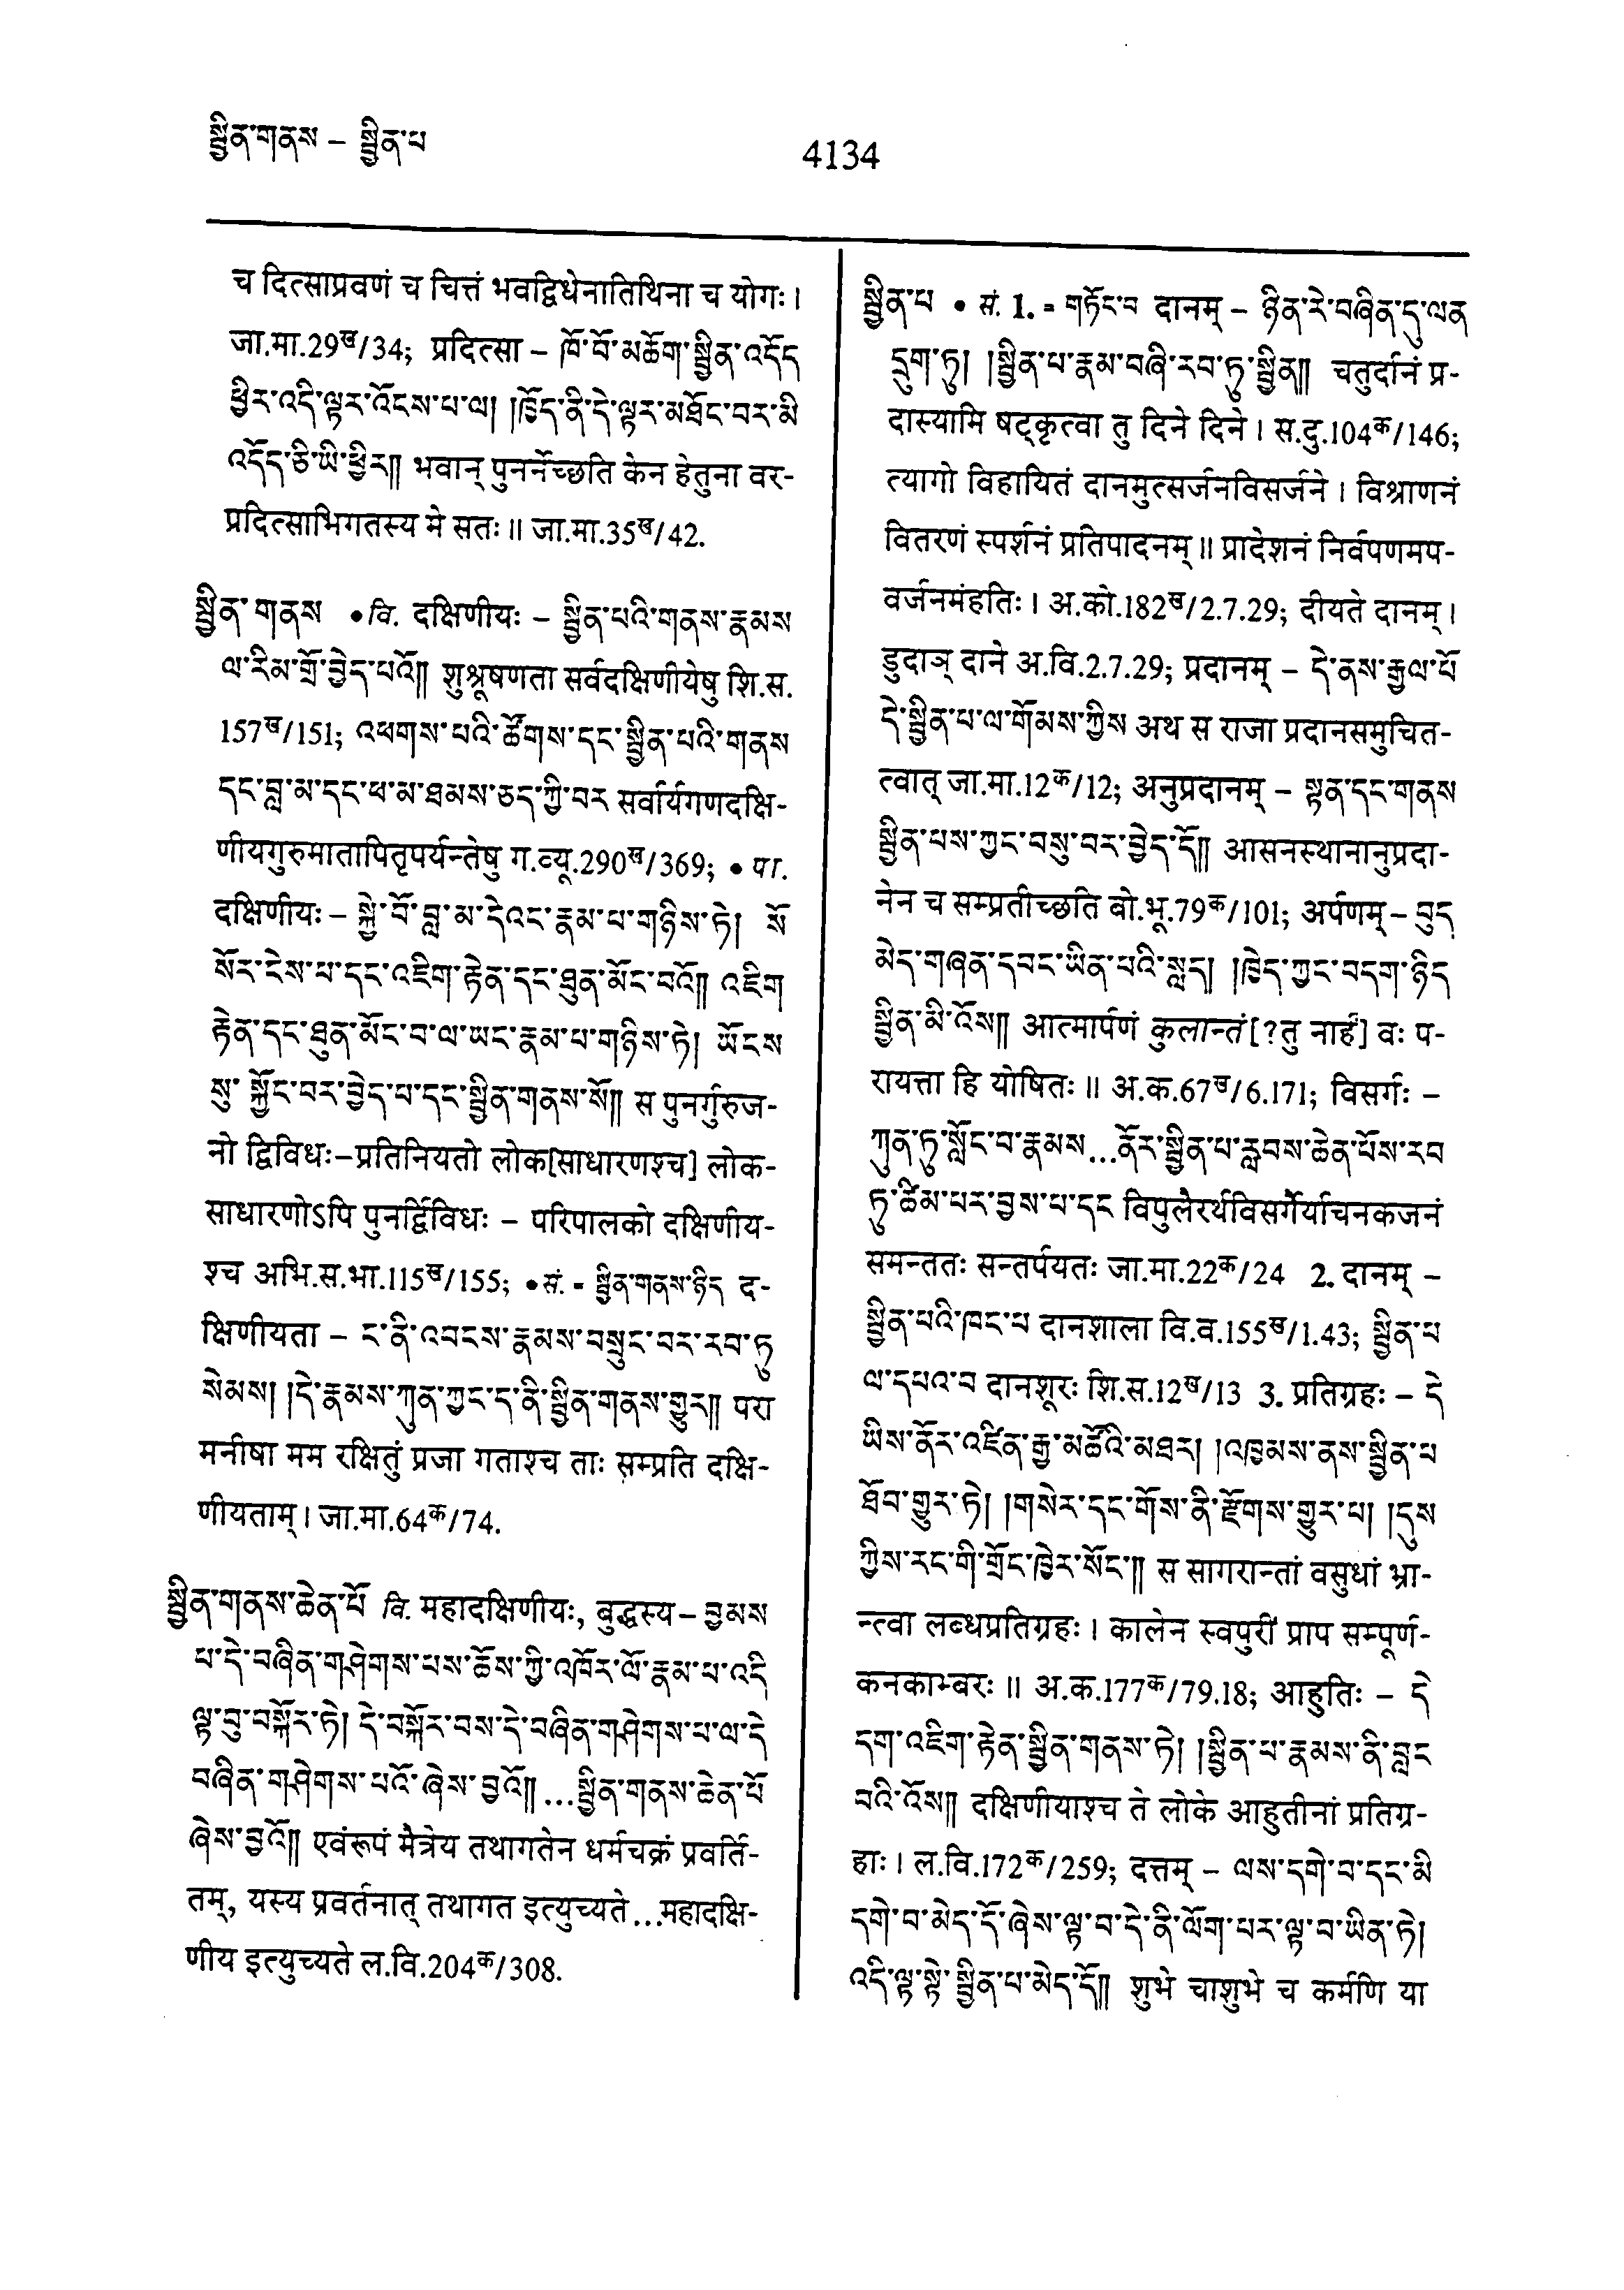 སྦྱིན་གནས – སྦྱིན་པ
4134
च दित्साप्रवणं च चित्तं भवद्विधेनातिथिना च योगः ।
जा.मा.29ख/34; प्रदित्सा – ཁོ་བོ་མཆོག་སྦྱིན་འདོད
ཕྱིར་འདི་ལྟར་འོངས་པ་ལ། །ཁྱོད་ནི་དེ་ལྟར་མཐོང་བར་མི
འདོད་ཅི་ཡི་ཕྱིར།། भवान् पुनर्नेच्छति केन हेतुना वर-
प्रदित्साभिगतस्य मे सतः ॥ जा.मा.35ख/42.
སྦྱིན་གནས •वि. दक्षिणीयः – སྦྱིན་པའི་གནས་རྣམས
ལ་རིམ་གྲོ་བྱེད་པའོ།། शुश्रूषणता सर्वदक्षिणीयेषु शि.स.
157ख/151; འཕགས་པའི་ཚོགས་དང་སྦྱིན་པའི་གནས
དང་བླ་མ་དང་ཕ་མ་ཐམས་ཅད་ཀྱི་བར सर्वार्यगणदक्षि-
णीयगुरुमातापितृपर्यन्तेषु ग.व्यू.290ख/369; • पा.
दक्षिणीयः – སྐྱེ་བོ་བླ་མ་དེའང་རྣམ་པ་གཉིས་ཏེ། སོ
སོར་ངེས་པ་དང་འཇིག་རྟེན་དང་ཐུན་མོང་བའོ།། འཇིག
རྟེན་དང་ཐུན་མོང་བ་ལ་ཡང་རྣམ་པ་གཉིས་ཏེ། ཡོངས
སུ་སྐྱོང་བར་བྱེད་པ་དང་སྦྱིན་གནས་སོ།། स पुनर्गुरुज-
नो द्विविधः–प्रतिनियतो लोक[साधारणश्च] लोक-
साधारणोऽपि पुनर्द्विविधः – परिपालको दक्षिणीय-
श्च अभि.स.भा.115ख/155; •सं. = སྦྱིན་གནས་ཉིད द-
क्षिणीयता – ང་ནི་འབངས་རྣམས་བསྲུང་བར་རབ་ཏུ
སེམས། །དེ་རྣམས་ཀུན་ཀྱང་ད་ནི་སྦྱིན་གནས་གྱུར།། परा
मनीषा मम रक्षितुं प्रजा गताश्च ताः सम्प्रति दक्षि-
णीयताम् । जा.मा.64क/74.
སྦྱིན་གནས་ཆེན་པོ वि. महादक्षिणीयः, बुद्धस्य – བྱམས
པ་དེ་བཞིན་གཤེགས་པས་ཆོས་ཀྱི་འཁོར་ལོ་རྣམ་པ་འདི
ལྟ་བུ་བསྐོར་ཏེ། དེ་བསྐོར་བས་དེ་བཞིན་གཤེགས་པ་ལ་དེ
བཞིན་གཤེགས་པའོ་ཞེས་བྱའོ།། ...སྦྱིན་གནས་ཆེན་པོ
ཞེས་བྱའོ།། एवंरूपं मैत्रेय तथागतेन धर्मचक्रं प्रवर्ति-
तम्, यस्य प्रवर्तनात् तथागत इत्युच्यते...महादक्षि-
णीय इत्युच्यते ल.वि.204क/308.
སྦྱིན་པ • सं. 1. = གཏོང་བ दानम् – ཉིན་རེ་བཞིན་དུ་ལན
དྲུག་ཏུ། །སྦྱིན་པ་རྣམ་བཞི་རབ་ཏུ་སྦྱིན།། चतुर्दानं प्र-
दास्यामि षट्कृत्वा तु दिने दिने । स.दु.104क/146;
त्यागो विहायितं दानमुत्सर्जनविसर्जने । विश्राणनं
वितरणं स्पर्शनं प्रतिपादनम् ॥ प्रादेशनं निर्वपणमप-
वर्जनमंहतिः । अ.को.182ख/2.7.29; दीयते दानम् ।
डुदाञ् दाने अ.वि.2.7.29; प्रदानम् – དེ་ནས་རྒྱལ་པོ
དེ་སྦྱིན་པ་ལ་གོམས་ཀྱིས अथ स राजा प्रदानसमुचित-
त्वात् जा.मा.12क/12; अनुप्रदानम् – སྟན་དང་གནས
སྦྱིན་པས་ཀྱང་བསུ་བར་བྱེད་དོ།། आसनस्थानानुप्रदा-
नेन च सम्प्रतीच्छति बो.भू.79क/101; अर्पणम् – བུད
མེད་གཞན་དབང་ཡིན་པའི་སླད། །ཁྱེད་ཀྱང་བདག་ཉིད
སྦྱིན་མི་འོས།། आत्मार्पणं कुलान्तं[?तु नार्हं] वः प-
रायत्ता हि योषितः ॥ अ.क.67ख/6.171; विसर्गः –
ཀུན་ཏུ་སློང་བ་རྣམས...ནོར་སྦྱིན་པ་རླབས་ཆེན་པོས་རབ
ཏུ་ཚིམ་པར་བྱས་པ་དང विपुलैरर्थविसर्गैर्याचनकजनं
समन्ततः सन्तर्पयतः जा.मा.22क/24 2. दानम् –
སྦྱིན་པའི་ཁང་པ दानशाला वि.व.155ख/1.43; སྦྱིན་པ
ལ་དཔའ་བ दानशूरः शि.स.12ख/13 3. प्रतिग्रहः – དེ
ཡིས་ནོར་འཛིན་རྒྱ་མཚོའི་མཐར། །འཁྱམས་ནས་སྦྱིན་པ
ཐོབ་གྱུར་ཏེ། །གསེར་དང་གོས་ནི་རྫོགས་གྱུར་པ། །དུས
ཀྱིས་རང་གི་གྲོང་ཁྱེར་སོང་།། स सागरान्तां वसुधां भ्रा-
न्त्वा लब्धप्रतिग्रहः । कालेन स्वपुरीं प्राप सम्पूर्ण-
कनकाम्बरः ॥ अ.क.177क/79.18; आहुतिः – དེ
དག་འཇིག་རྟེན་སྦྱིན་གནས་ཏེ། །སྦྱིན་པ་རྣམས་ནི་བླང
བའི་འོས།། दक्षिणीयाश्च ते लोके आहुतीनां प्रतिग्र-
हाः । ल.वि.172क/259; दत्तम् – ལས་དགེ་བ་དང་མི
དགེ་བ་མེད་དོ་ཞེས་ལྟ་བ་དེ་ནི་ལོག་པར་ལྟ་བ་ཡིན་ཏེ།
འདི་ལྟ་སྟེ་སྦྱིན་པ་མེད་དོ།། शुभे चाशुभे च कर्मणि या